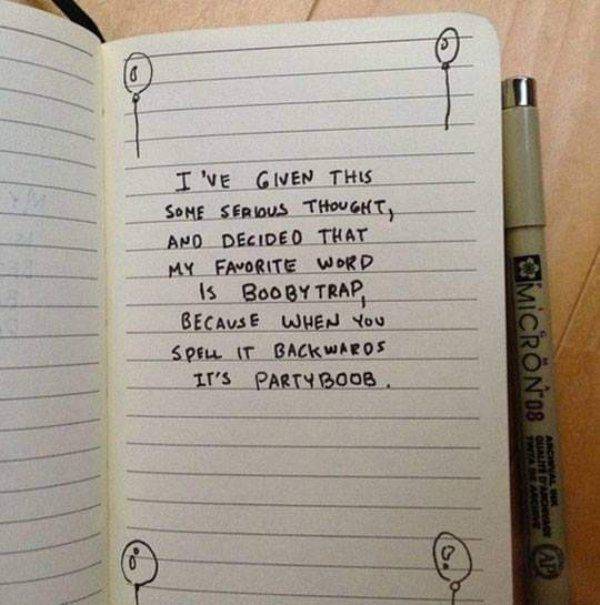 I'VE GIVEN THIS
SOME SERIOUS THOUGHT,
AND DECIDED THAT
MY FAVORITE WORD
IS BOOBYTRAP,
BECAUSE WHEN YOU
SPELL IT BACKWARDS
IT'S PARTYBOOB.
MICRON 08
ARCHIVAL INK
AP